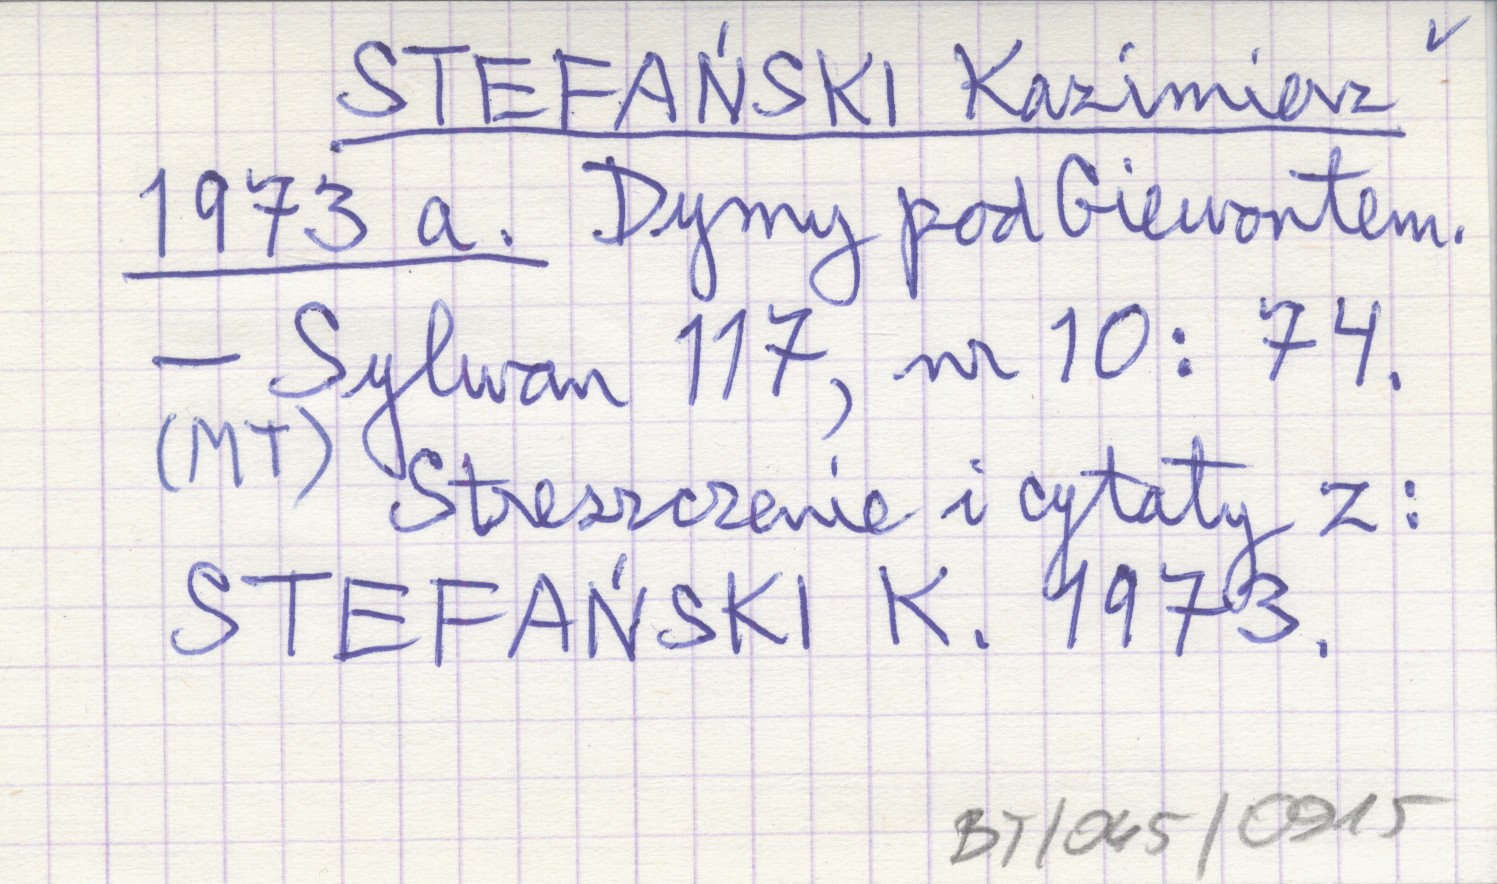 STEFAŃSKI Kazimierz
1973 a. Dymy pod Giewontem.
— Sylwan 117, nr 10: 74.
(MT)
Streszczenie i cytaty z:
STEFAŃSKI K. 1973.
BT/045/0915